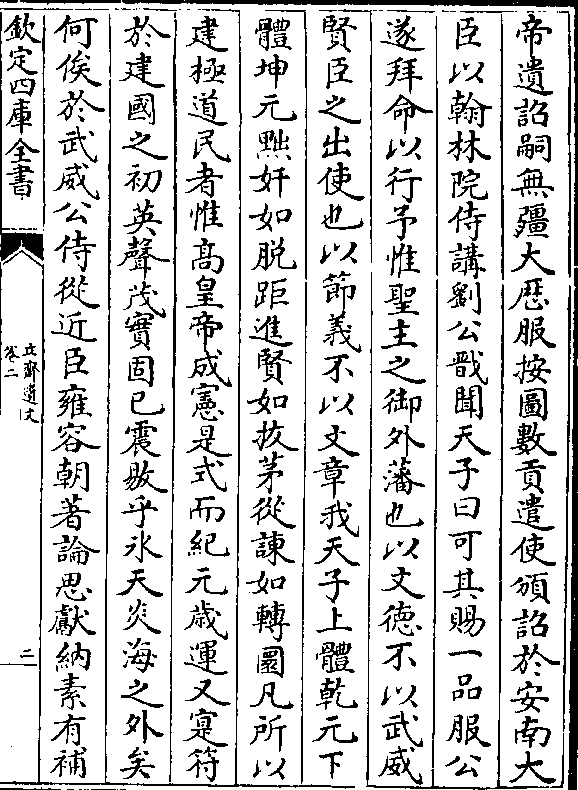 帝遺詔嗣無疆大厯服按圖數貢遣使頒詔於安南大
臣以翰林院侍講劉公戩聞天子曰可其賜一品服公
遂拜命以行予惟聖主之御外藩也以文德不以武威
賢臣之出使也以節義不以文章我天子上體乾元下
體坤元黜奸如脱距進賢如拔茅從諌如轉圜凡所以
建極道民者惟髙皇帝成憲是式而紀元歲運又寔符
於建國之初英聲茂實固已震敭乎氷天炎海之外矣
何俟於武威公侍從近臣雍容朝著論思獻納素有補
欽定四庫全書
立齋遺文
卷二
二